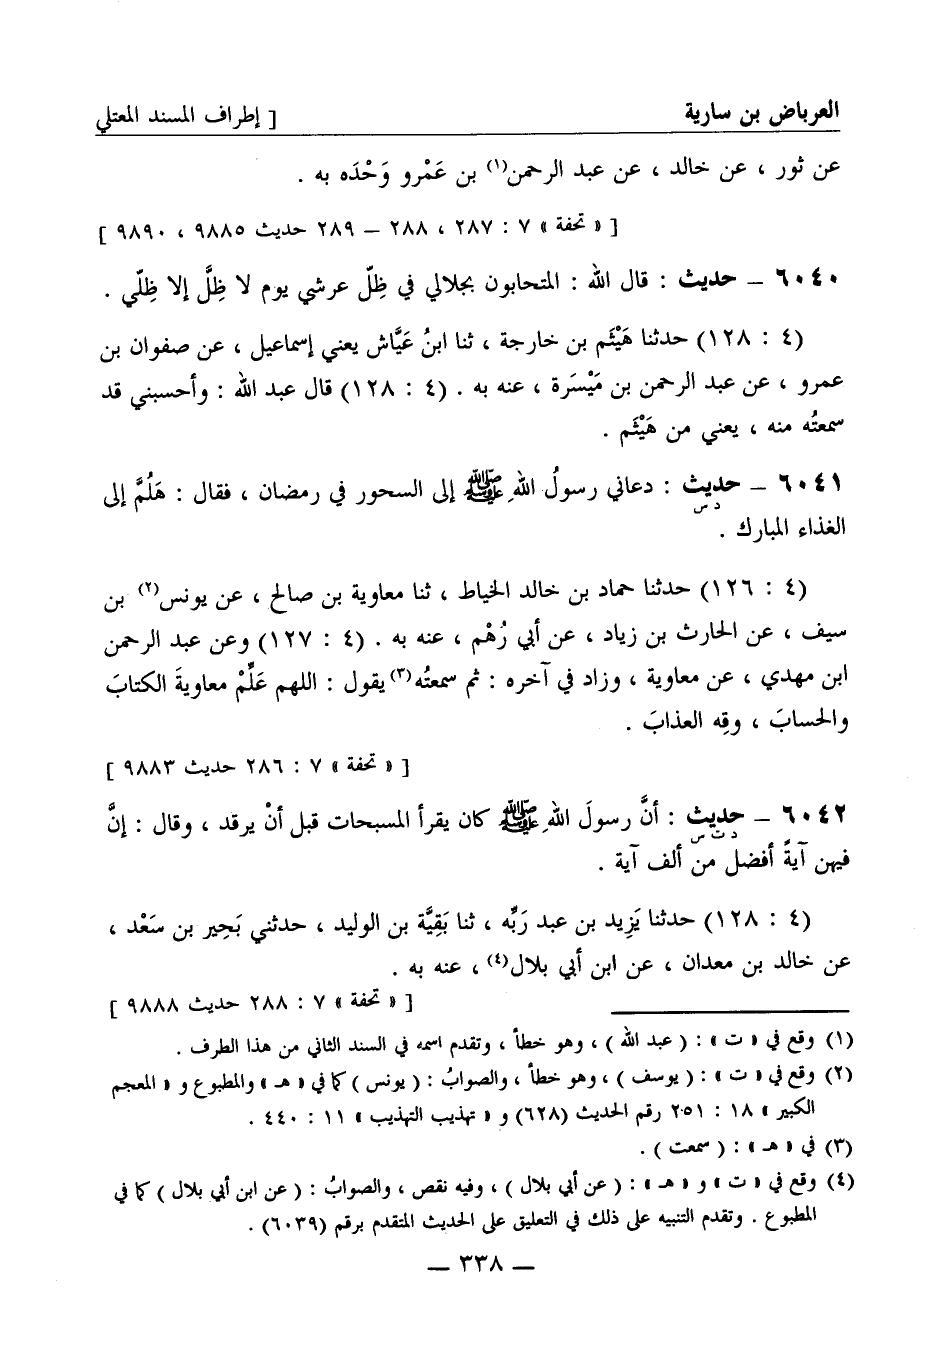 العرباض بن سارية [ إطراف المسند المعتلي
عن ثور ، عن خالد ، عن عبد الرحمن(١) بن عَمْرو وَحْدَه به .
[ « تحفة » ٧ : ٢٨٧ ، ٢٨٨ – ٢٨٩ حديث ٩٨٨٥ ، ٩٨٩٠ ]
٦٠٤٠ – حديث : قال الله : المتحابون بجلالي في ظِلّ عرشي يوم لا ظِلَّ إلا ظِلّي .
(٤ : ١٢٨) حدثنا هَيْثَم بن خارجة ، ثنا ابنُ عَيَّاش يعني إسماعيل ، عن صفوان بن
عمرو ، عن عبد الرحمن بن مَيْسَرة ، عنه به . (٤ : ١٢٨) قال عبد الله : وأحسبني قد
سمعتُه منه ، يعني من هَيْثَم .
٦٠٤١ – حديث : دعاني رسولُ اللهِ ﷺ إلى السحور في رمضان ، فقال : هَلُمَّ إلى
د س
الغذاء المبارك .
(٤ : ١٢٦) حدثنا حماد بن خالد الخياط ، ثنا معاوية بن صالح ، عن يونس(٢) بن
سيف ، عن الحارث بن زياد ، عن أبي رُهْم ، عنه به . (٤ : ١٢٧) وعن عبد الرحمن
ابن مهدي ، عن معاوية ، وزاد في آخره : ثم سمعتُه(٣) يقول : اللهم عَلِّمْ معاويةَ الكتابَ
والحسابَ ، وقِه العذابَ .
[ « تحفة » ٧ : ٢٨٦ حديث ٩٨٨٣ ]
٦٠٤٢ – حديث : أنَّ رسولَ اللهِ ﷺ كان يقرأ المسبحات قبل أنْ يرقد ، وقال : إنَّ
د ت س
فيهن آيةً أفضل من ألف آية .
(٤ : ١٢٨) حدثنا يَزِيد بن عبد رَبِّه ، ثنا بَقِيَّة بن الوليد ، حدثني بَحِير بن سَعْد ،
عن خالد بن معدان ، عن ابن أبي بلال(٤) ، عنه به .
[ « تحفة » ٧ : ٢٨٨ حديث ٩٨٨٨ ]
(١) وقع في « ت » : ( عبد الله ) ، وهو خطأ ، وتقدم اسمه في السند الثاني من هذا الطرف .
(٢) وقع في « ت » : ( يوسف ) ، وهو خطأ ، والصوابُ : ( يونس ) كما في « هـ » والمطبوع و « المعجم
الكبير » ١٨ : ٢٥١ رقم الحديث (٦٢٨) و « تهذيب التهذيب » ١١ : ٤٤٠ .
(٣) في « هـ » : ( سمعت ) .
(٤) وقع في « ت » و « هـ » : ( عن أبي بلال ) ، وفيه نقص ، والصوابُ : ( عن ابن أبي بلال ) كما في
المطبوع . وتقدم التنبيه على ذلك في التعليق على الحديث المتقدم برقم (٦٠٣٩) .
– ٣٣٨ –